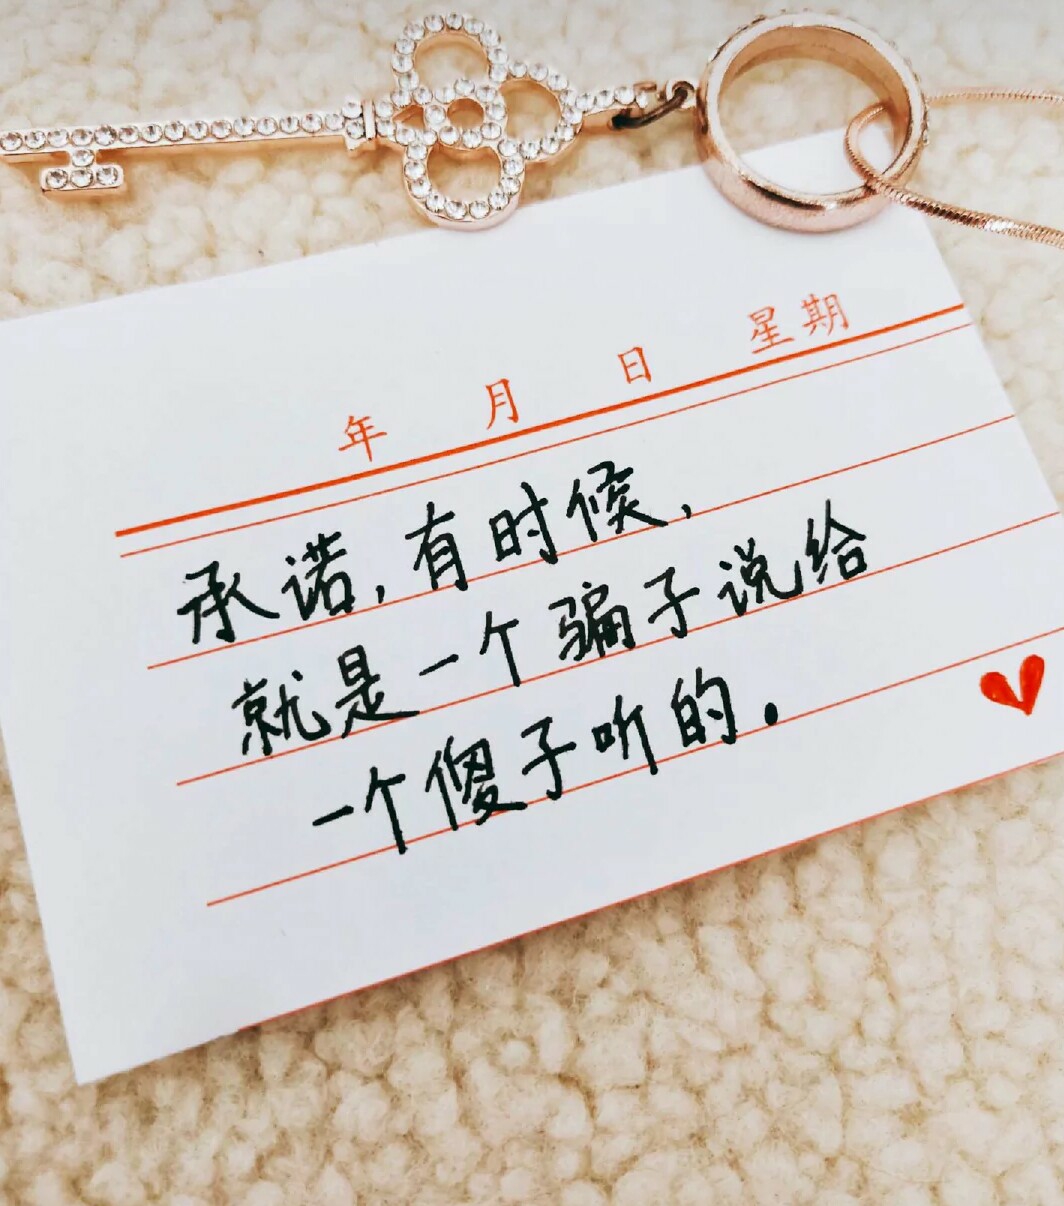 年 月 日 星期
承诺,有时候,
就是一个骗子说给
一个傻子听的.